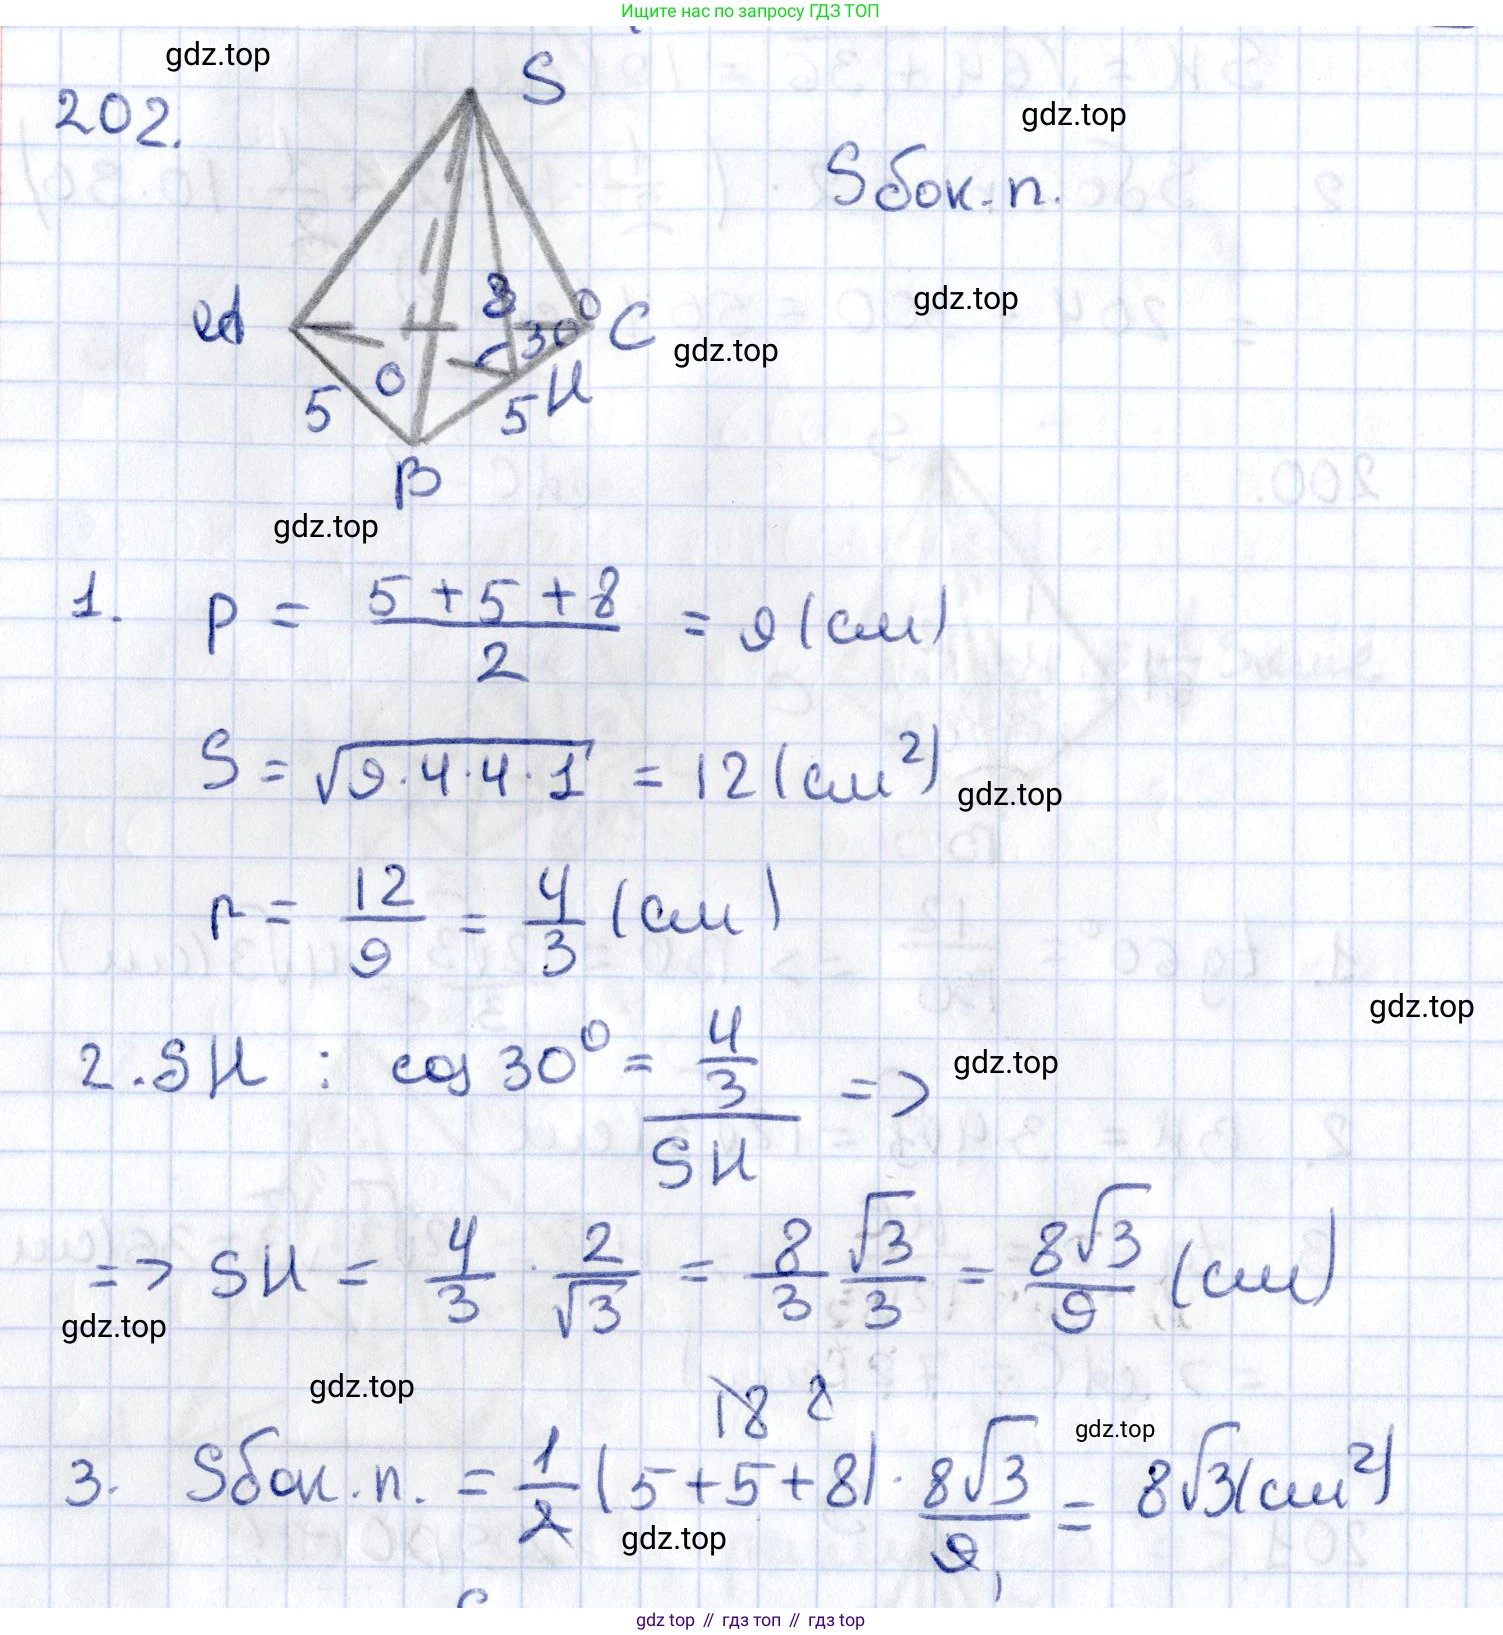 Ищите нас по запросу ГДЗ ТОП
gdz.top
202.
S
gdz.top
Sбок.п.
A
8
30°
C
gdz.top
gdz.top
O
H
5
5
B
gdz.top
1. p = (5 + 5 + 8)/2 = 9 (см)
S = √(9·4·4·1) = 12 (см²)
gdz.top
r = 12/9 = 4/3 (см)
gdz.top
2. SH : cos 30° = (4/3)/SH =>
gdz.top
=> SH = 4/3 · 2/√3 = 8/3 √3/3 = 8√3/9 (см)
gdz.top
gdz.top
18 8
gdz.top
3. Sбок.п. = 1/2 (5+5+8) · 8√3/9 = 8√3 (см²)
gdz.top
gdz top // гдз топ // гдз top